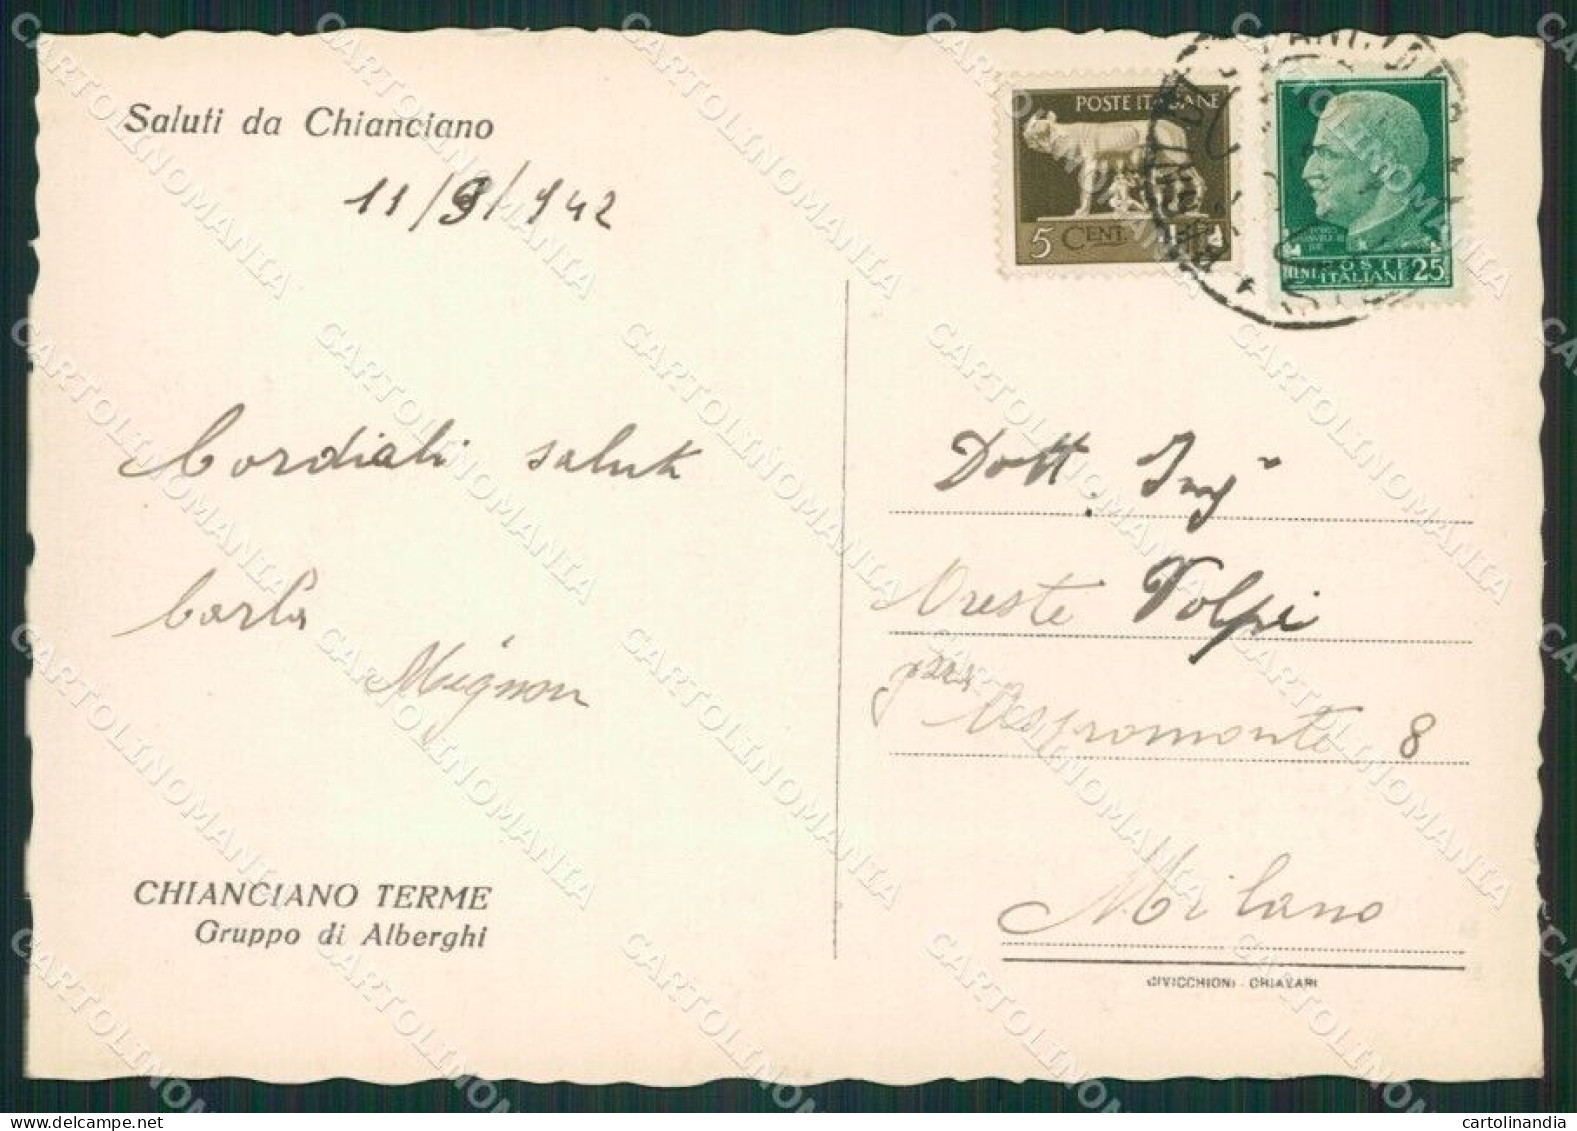 Saluti da Chianciano
11/9/942
Cordiali saluti
Carlo
Mignon
CHIANCIANO TERME
Gruppo di Alberghi
POSTE ITALIANE
5 CENT.
POSTE
ITALIANE 25
Dott. Ing
Oreste Volpi
Aspromonte 8
Milano
CIVICCHIONI - CHIAVARI
CARTOLINOMANIA
cartolinandia